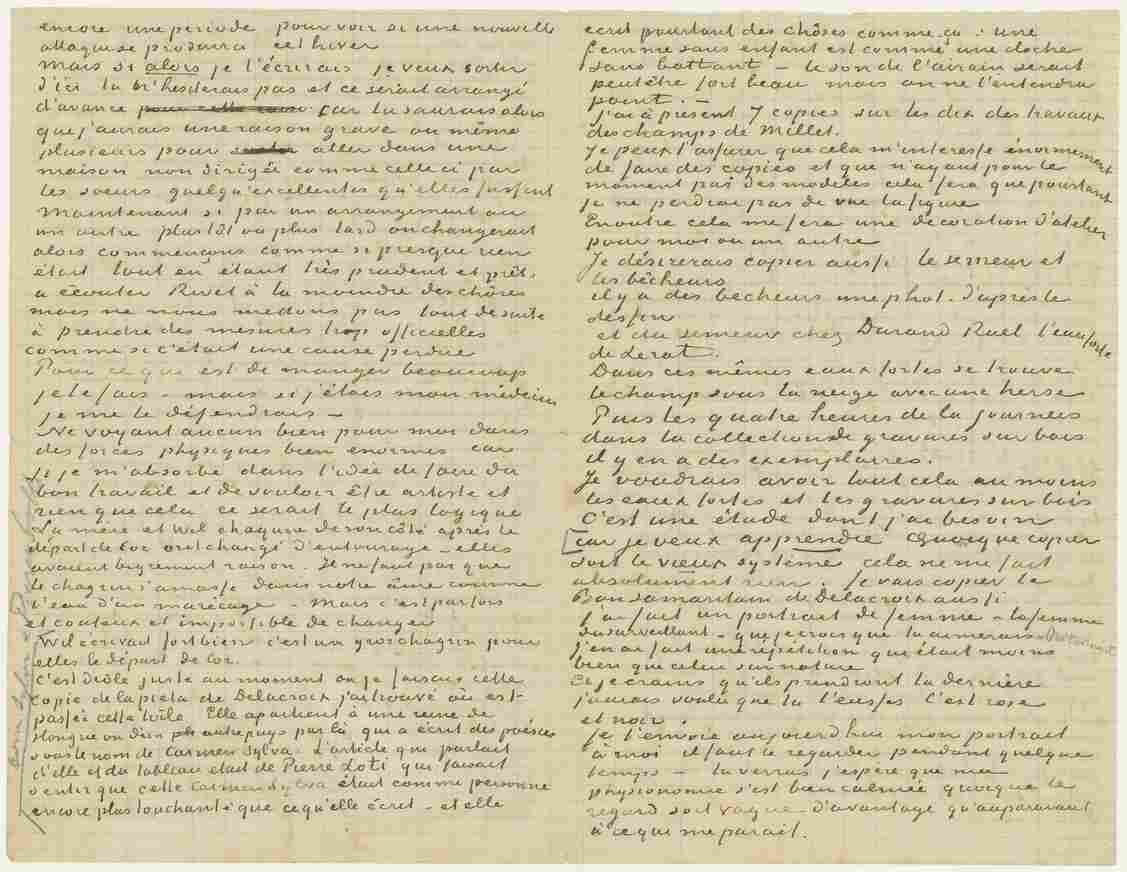 encore une période pour voir si une nouvelle
attaque se produira cet hiver
Mais si alors je t'écrirais je veux sortir
d'ici tu n'hesiterais pas et ce serait arrangé
d'avance pour cette raison car tu saurais alors
que j'aurais une raison grave ou même
plusieurs pour aller dans une
maison non dirigée comme celle ci par
les soeurs quelqu'excellentes qu'elles fussent
Maintenant si par un arrangement ou
un autre plus tôt ou plus tard on changerait
alors commençons comme si presque rien
était tout en étant très prudent et prêt
à écouter Rivet à la moindre des chôses
mais ne nous mettons pas tout de suite
à prendre des mesures trop officielles
comme si c'était une cause perdue
Pour ce que est de manger beaucoup
je le fais – mais si j'étais mon médecin
je me le défendrais –
Ne voyant aucun bien pour moi dans
des forces physiques bien enormes car
si je m'absorbe dans l'idée de faire du
bon travail et de vouloir être artiste et
rien que cela ce serait le plus logique
La mère et Wil chaqune de son côté après le
départ de Cor ont changé d'entourage – elles
avaient bigrement raison. Il ne faut pas que
le chagrin s'amasse dans notre âme comme
l'eau d'un marécage – Mais c'est parfois
et couteux et impossible de changer
Wil écrivait fort bien c'est un gros chagrin pour
elles le départ de Cor.
C'est drôle juste au moment ou je faisais cette
copie de la pieta de Delacroix j'ai trouvé où est
passée cette toile. Elle apartient à une reine de
Hongrie ou d'un autre pays par là qui a écrit des poésies
sous le nom de Carmen Sylva. L'article qui parlait
d'elle et du tableau etait de Pierre Loti qui faisait
sentir que cette Carmen Sylva était comme personne
encore plus touchante que ce qu'elle écrit – et elle
ecrit pourtant des chôses comme ça : une
femme sans enfant est comme une cloche
sans battant – le son de l'airain serait
peutêtre fort beau mais on ne l'entendra
point. –
J'ai à présent 7 copies sur les dix des travaux
des champs de Millet.
Je peux t'assurer que cela m'interesse énormement
de faire des copies et que n'ayant pour le
moment pas des modèles cela fera que pourtant
je ne perdrai pas de vue la figure
En outre cela me fera une décoration d'atelier
pour moi ou un autre
Je désirerais copier aussi le semeur et
les bêcheurs
il y a des bêcheurs une phot. d'après le
dessin
et du semeur chez Durand Ruel l'eau forte
de Lerat.
Dans ces mêmes eaux fortes se trouve
le champ sous la neige avec une herse
Puis les quatre heures de la journées
dans la collection de gravures sur bois
il y en a des exemplaires.
Je voudrais avoir tout cela au moins
les eaux fortes et les gravures sur bois
C'est une étude dont j'ai besoin
car je veux apprendre Quoique copier
soit le vieux système cela ne me fait
absolument rien. Je vais copier le
Bon samaritain de Delacroix aussi
J'ai fait un portrait de femme – la femme
du surveillant – que je crois que tu aimerais
j'en ai fait une répétition que était moins
bien que celui sur nature
Et je crains qu'ils prendront la dernière
j'aurais voulu que tu l'eusses C'est rose
et noir.
Je t'envoie aujourd'hui mon portrait
à moi il faut le regarder pendant quelque
temps – tu verras j'espère que ma
physionomie s'est bien calmée quoique le
regard soit vague d'avantage qu'auparavant
à ce qui me parait.